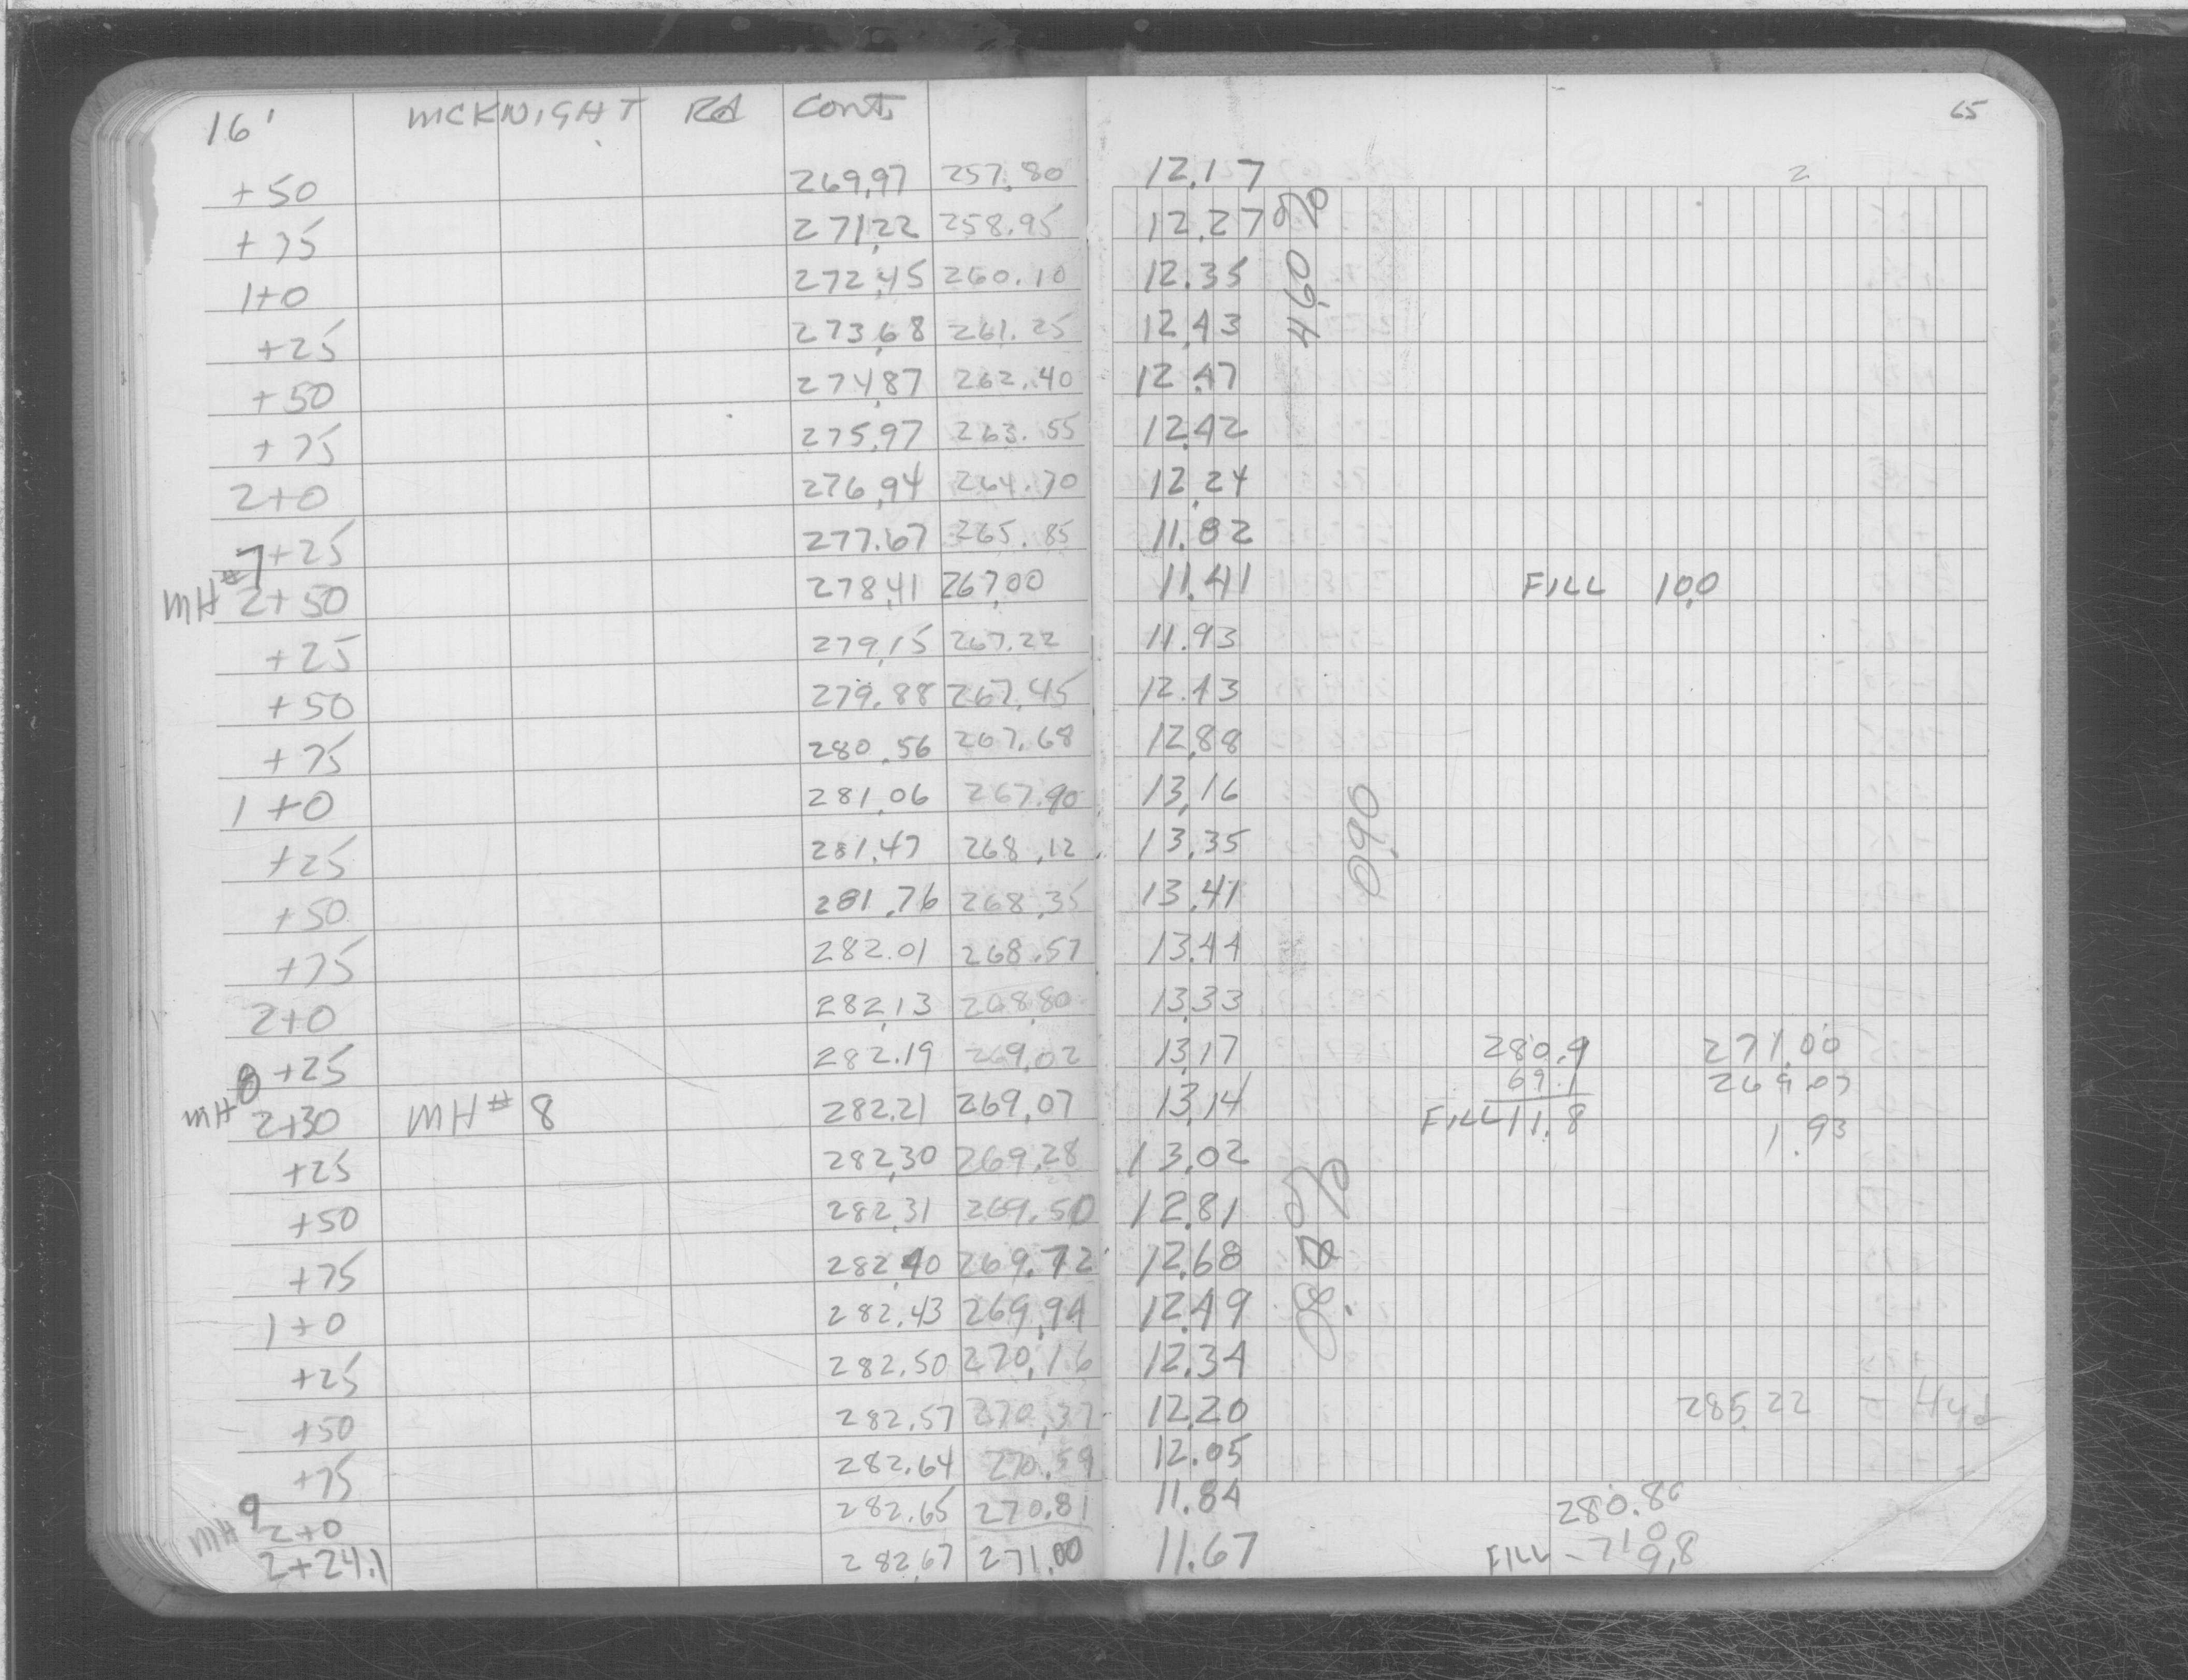 16' MCKNIGHT Rd Cont. 65
+50 269.97 257.80 12.17 2
+75 271.22 258.95 12.27
1+0 272.45 260.10 12.35
4.60 %
+25 273.68 261.25 12.43
+50 274.87 262.40 12.47
+75 275.97 263.55 12.42
2+0 276.94 264.70 12.24
+25 277.67 265.85 11.82
MH #7 2+50 278.41 267.00 11.41 FILL 10.0
+25 279.15 267.22 11.93
+50 279.88 267.45 12.43
+75 280.56 267.68 12.88
1+0 281.06 267.90 13.16
0.90
+25 281.47 268.12 13.35
+50 281.76 268.35 13.41
+75 282.01 268.57 13.44
2+0 282.13 268.80 13.33
+25 282.19 269.02 13.17 280.9 271.00
69.1 269.07
MH 8 2+30 MH # 8 282.21 269.07 13.14 FILL 11.8 1.93
+25 282.30 269.28 13.02
+50 282.31 269.50 12.81
+75 282.40 269.72 12.68
0.88 %
1+0 282.43 269.94 12.49
+25 282.50 270.16 12.34
+50 282.57 270.37 12.20 285.22 = Hyd
+75 282.64 270.59 12.05
MH 9 2+0 282.65 270.81 11.84 280.80
2+24.1 282.67 271.00 11.67 FILL -71.0
9.8